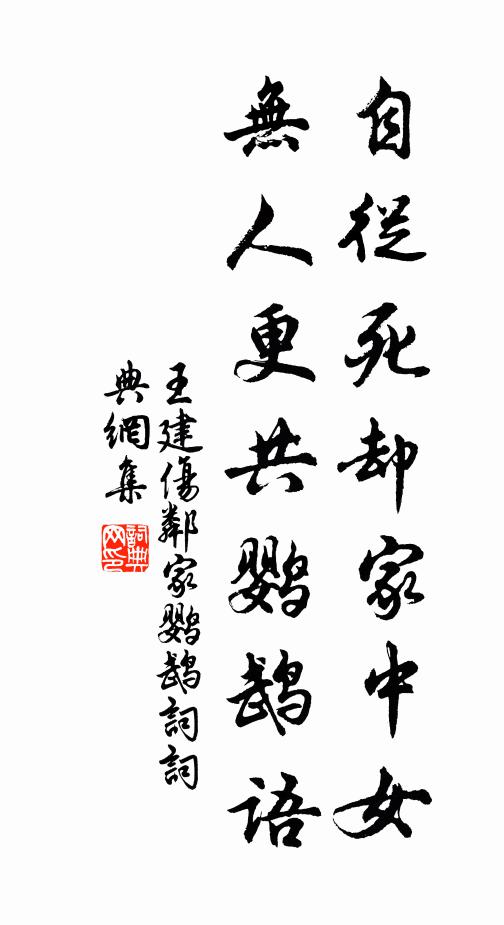 自從死却家中女
無人更共鸚鵡語
王建傷鄰家鸚鵡詞詞
典網集
詞典
网印